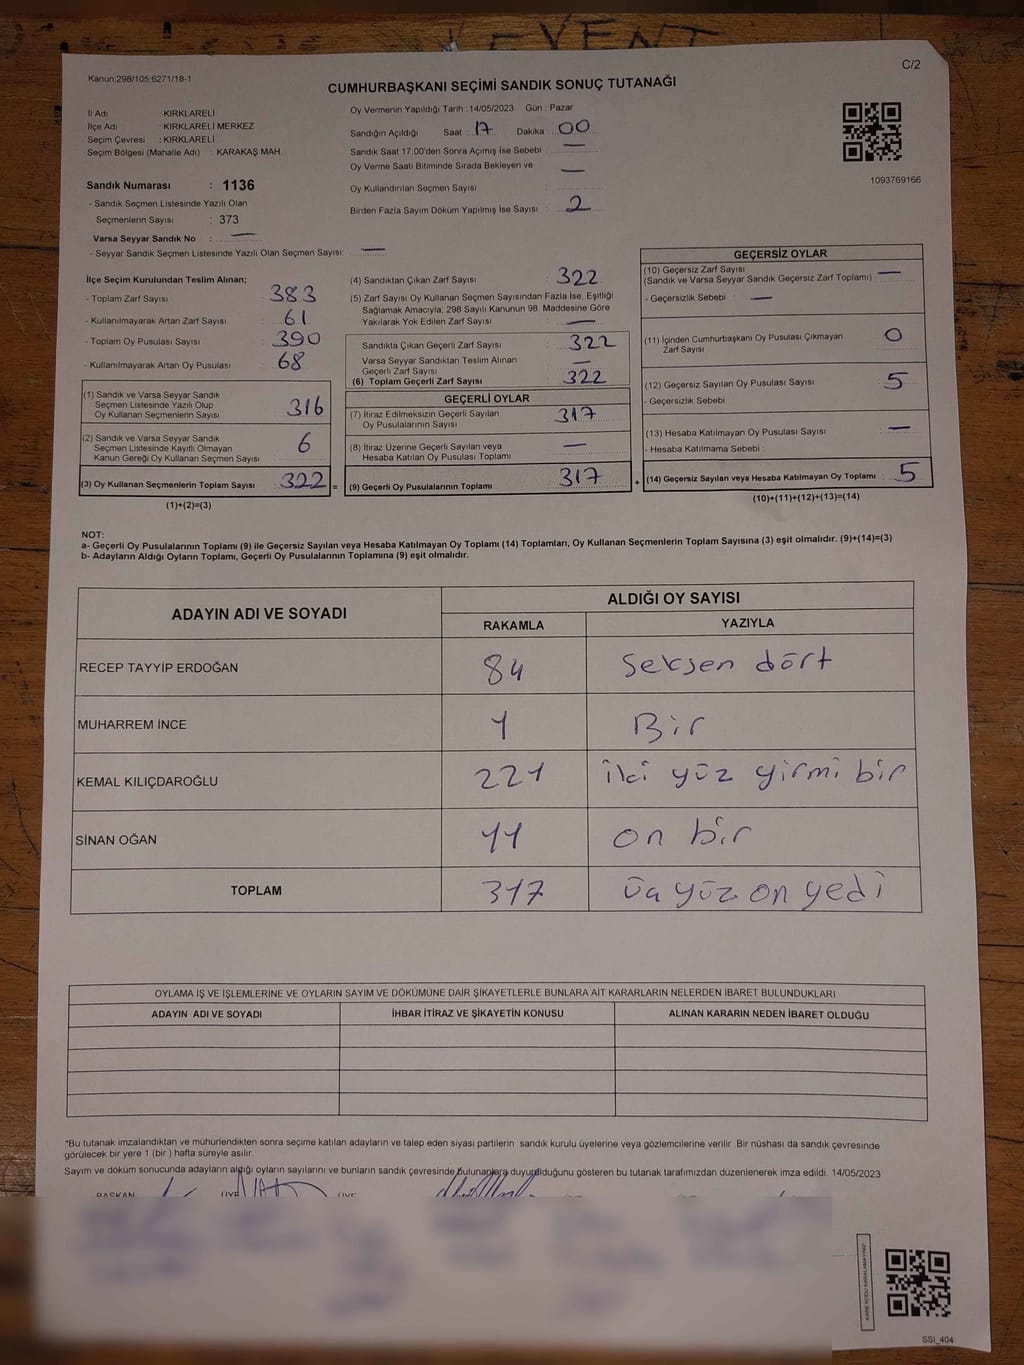 LEVENT
Kanun;298/105;6271/18-1
C/2
CUMHURBAŞKANI SEÇİMİ SANDIK SONUÇ TUTANAĞI
İl Adı : KIRKLARELİ
İlçe Adı : KIRKLARELİ MERKEZ
Seçim Çevresi : KIRKLARELİ
Seçim Bölgesi (Mahalle Adı) : KARAKAŞ MAH.
Sandık Numarası : 1136
- Sandık Seçmen Listesinde Yazılı Olan
Seçmenlerin Sayısı : 373
Varsa Seyyar Sandık No : —
- Seyyar Sandık Seçmen Listesinde Yazılı Olan Seçmen Sayısı: —
Oy Vermenin Yapıldığı Tarih : 14/05/2023 Gün : Pazar
Sandığın Açıldığı Saat : 17 Dakika : 00
Sandık Saat 17:00'den Sonra Açımış İse Sebebi : —
Oy Verme Saati Bitiminde Sırada Bekleyen ve
Oy Kullandırılan Seçmen Sayısı : —
Birden Fazla Sayım Döküm Yapılmış İse Sayısı : 2
1093769166
İlçe Seçim Kurulundan Teslim Alınan;
- Toplam Zarf Sayısı : 383
- Kullanılmayarak Artan Zarf Sayısı : 61
- Toplam Oy Pusulası Sayısı : 390
- Kullanılmayarak Artan Oy Pusulası : 68
(1) Sandık ve Varsa Seyyar Sandık
Seçmen Listesinde Yazılı Olup
Oy Kullanan Seçmenlerin Sayısı 316
(2) Sandık ve Varsa Seyyar Sandık
Seçmen Listesinde Kayıtlı Olmayan
Kanun Gereği Oy Kullanan Seçmen Sayısı 6
(3) Oy Kullanan Seçmenlerin Toplam Sayısı 322 =
(1)+(2)=(3)
(4) Sandıktan Çıkan Zarf Sayısı : 322
(5) Zarf Sayısı Oy Kullanan Seçmen Sayısından Fazla İse, Eşitliği
Sağlamak Amacıyla; 298 Sayılı Kanunun 98. Maddesine Göre
Yakılarak Yok Edilen Zarf Sayısı : —
Sandıkta Çıkan Geçerli Zarf Sayısı : 322
Varsa Seyyar Sandıktan Teslim Alınan
Geçerli Zarf Sayısı : —
(6) Toplam Geçerli Zarf Sayısı : 322
GEÇERLİ OYLAR
(7) İtiraz Edilmeksizin Geçerli Sayılan
Oy Pusulalarının Sayısı : 317
(8) İtiraz Üzerine Geçerli Sayılan veya
Hesaba Katılan Oy Pusulası Toplamı : —
(9) Geçerli Oy Pusulalarının Toplamı : 317 +
GEÇERSİZ OYLAR
(10) Geçersiz Zarf Sayısı
(Sandık ve Varsa Seyyar Sandık Geçersiz Zarf Toplamı) : —
- Geçersizlik Sebebi : —
(11) İçinden Cumhurbaşkanı Oy Pusulası Çıkmayan
Zarf Sayısı : 0
(12) Geçersiz Sayılan Oy Pusulası Sayısı : 5
- Geçersizlik Sebebi
(13) Hesaba Katılmayan Oy Pusulası Sayısı : —
- Hesaba Katılmama Sebebi :
(14) Geçersiz Sayılan veya Hesaba Katılmayan Oy Toplamı : 5
(10)+(11)+(12)+(13)=(14)
NOT:
a- Geçerli Oy Pusulalarının Toplamı (9) ile Geçersiz Sayılan veya Hesaba Katılmayan Oy Toplamı (14) Toplamları, Oy Kullanan Seçmenlerin Toplam Sayısına (3) eşit olmalıdır. (9)+(14)=(3)
b- Adayların Aldığı Oyların Toplamı, Geçerli Oy Pusulalarının Toplamına (9) eşit olmalıdır.
ADAYIN ADI VE SOYADI ALDIĞI OY SAYISI
RAKAMLA YAZIYLA
RECEP TAYYİP ERDOĞAN 84 Seksen dört
MUHARREM İNCE 1 Bir
KEMAL KILIÇDAROĞLU 221 iki yüz yirmi bir
SİNAN OĞAN 11 on bir
TOPLAM 317 üç yüz on yedi
OYLAMA İŞ VE İŞLEMLERİNE VE OYLARIN SAYIM VE DÖKÜMÜNE DAİR ŞİKAYETLERLE BUNLARA AİT KARARLARIN NELERDEN İBARET BULUNDUKLARI
ADAYIN ADI VE SOYADI İHBAR İTİRAZ VE ŞİKAYETİN KONUSU ALINAN KARARIN NEDEN İBARET OLDUĞU
*Bu tutanak imzalandıktan ve mühürlendikten sonra seçime katılan adayların ve talep eden siyasi partilerin sandık kurulu üyelerine veya gözlemcilerine verilir. Bir nüshası da sandık çevresinde
görülecek bir yere 1 (bir ) hafta süreyle asılır.
Sayım ve döküm sonucunda adayların aldığı oyların sayılarını ve bunların sandık çevresinde bulunanlara duyurulduğunu gösteren bu tutanak tarafımızdan düzenlenerek imza edildi. 14/05/2023
BAŞKAN ÜYE ÜYE
SSİ_404